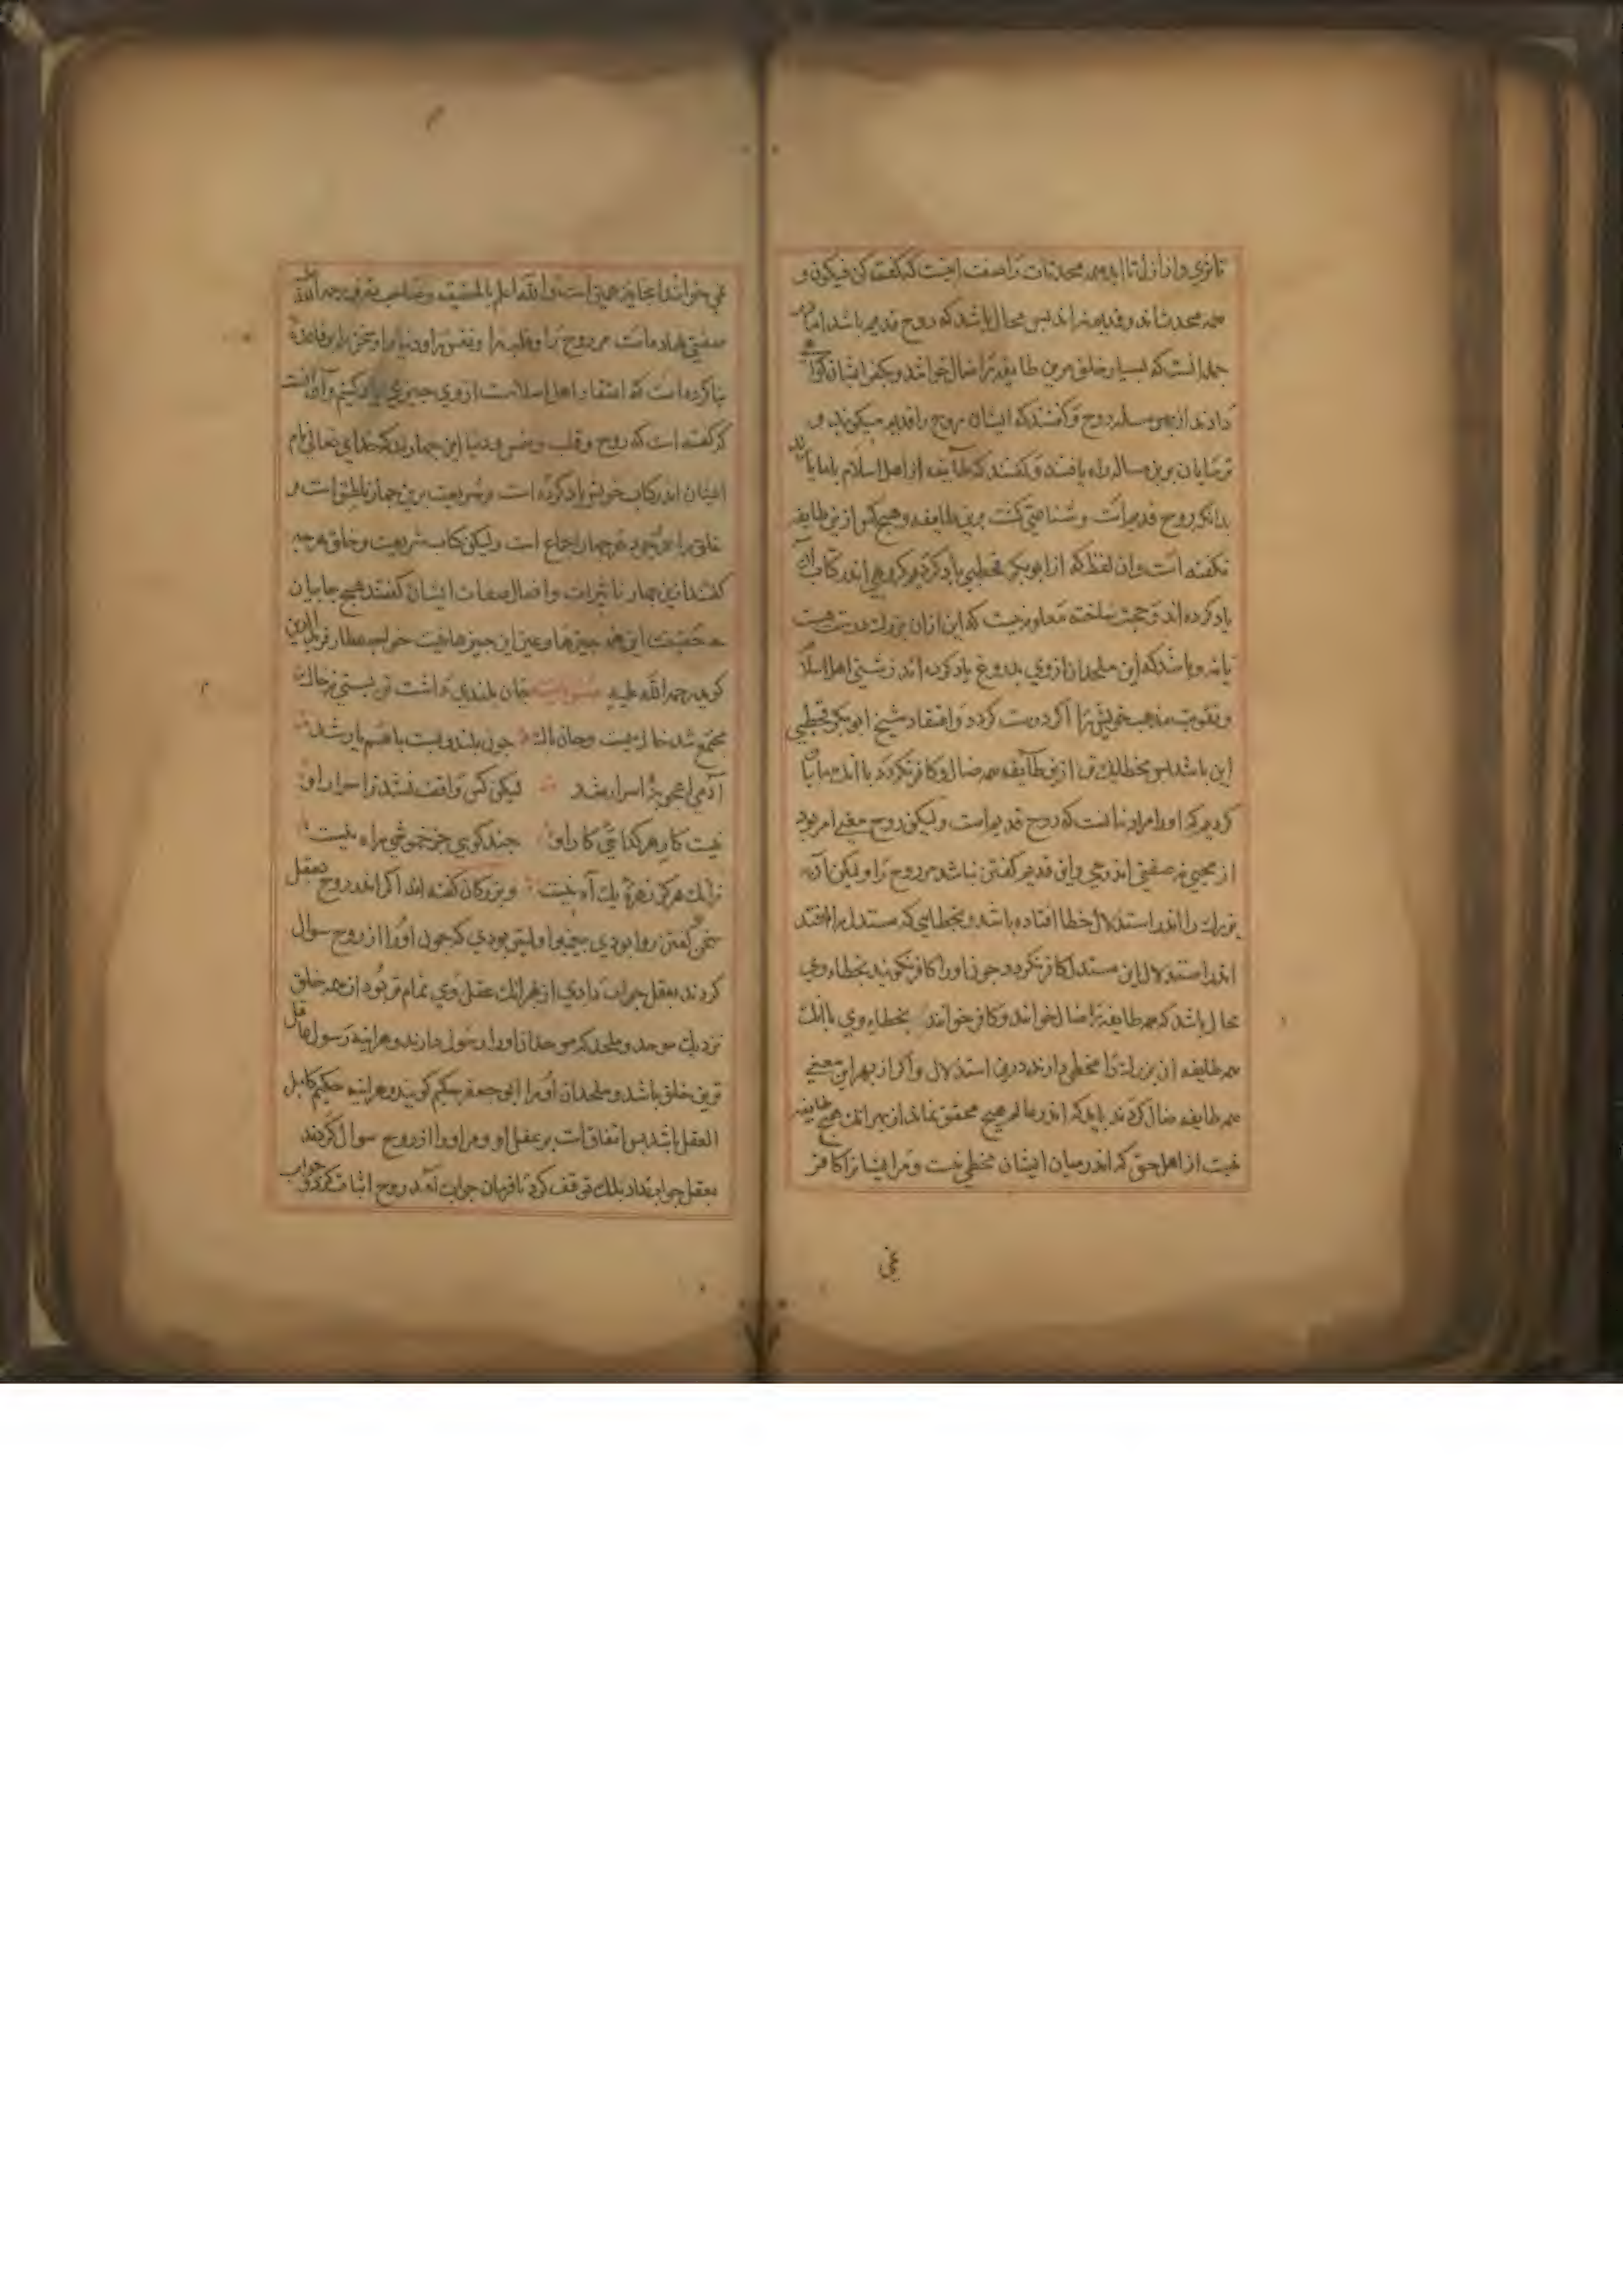 تا ثری و از ازل تا ابد همه محدثات را صفت اینست که گفت کن فیکون و
همه محدث‌اند و قدیم نه‌اند پس محال باشد که روح قدیم باشد اما
جمله آنست که بسیار خلق مرین طایفه را ضال خوانند و بکفر ایشان
دادند از بهر مسله روح و گفتند که ایشان روح را قدیم میگویند و
ترسایان برین مساله راه یافتند و گفتند که طایفه از اهل اسلام با ما
بدانکه روح قدیم است و شناعتی گشت برین طایفه و هیچ کس ازین طایفه
نگفته است و ان لفظ که از ابوبکر قحطبی یاد کردیم کروهی اندر کتاب
یاد کرده اند و حجت ساخته معلوم نیست که این ازان بزرك درست هست
یا نه و باشد که این ملحدان از وی بدروغ یاد کرده اند زشتی اهل اسلام
و تقویت مذهب خویش را اگر درست کردد و اعتقاد شیخ ابوبکر قحطبی
این باشد بس بخطا یك تن ازین طایفه همه ضال و کافر نکردد با انك ما بیان
کردیم که او را مراد نه انست که روح قدیم است ولیکن روح معنی امر بود
از محیی نه صفتی اندر حی و این قدیم گفتن نباشد مر روح را و لیکن آن
بزرك را اندر استدلال خطا افتاده باشد و بخطایی که مستدل را افتد
اندر استدلال این مستدل کافر نکردد و چون او را کافر نکویند بخطاء وی
محال باشد که همه طایفه را ضال خوانند و کافر خوانند بخطاء وی با انك
همه طایفه ان بزرك را مخطی دارند درین استدلال و اگر از بهر این معنی
همه طایفه ضال گردند باید که اندر عالم هیچ محقق نماند از بهر انك هیچ طایفه
نیست از اهل حق که اندر میان ایشان مخطی نیست و مر ایشان را کافر
نمی
نمی خوانند اینجا نیز همچنین است و الله اعلم بالحقیقه و صاحب تعرف رحمه الله
صفتی نهاده است مر روح را و قلب را و نفس را و دنیا را و سخن را بر قاعده
بنا کرده است که اعتقاد اهل اسلام است از وی چیزی یاد کنیم و آن آنست
که گفته است که روح و قلب و نفس و دنیا این چهارند که خدای تعالی نام
ایشان اندر کتاب خویش یاد کرده است و شریعت برین چهار ناطق است و
خلق را بوجود هر چهار اجماع است ولیکن کتاب شریعت و خلق هر چه
گفتند ازین چهار تاثیرات و افعال صفات ایشان گفتند هیچ جا بیان
حقیقت این همه چیزها و عین این چیزها نیست خواجه عطار فرید الدین
گوید رحمه الله علیه جان بلندی داشت تن پستی ز خاك
مجتمع شد خاك پست و جان پاك چون بلند و پست با هم یار شد
آدمی اعجوبه اسرار شد لیکن کس واقف نشد ز اسرار او
نیست کار هر گدایی کار او چند گویی جز خموشی راه نیست
زانك هر کز زهره یك آه نیست و بزرگان گفته اند اگر اندر روح بعقل
سخن گفتن روا بودی پیغمبر اولیتر بودی که چون او را از روح سوال
کردند بعقل جواب دادی از بهر انك عقل وی تمام تر بود از همه خلق
نزدیك موحد و ملحد که موحدان او را رسول دارند و هراینه رسول عاقل
ترین خلق باشد و ملحدان او را ابو جعفر حکیم گویند و هراینه حکیم کامل
العقل باشد پس اتفاق است بر عقل او و مر او را از روح سوال کردند
بعقل جواب نداد بلك توقف کرد تا فرمان جواب آمد روح اثبات کرد و جواب